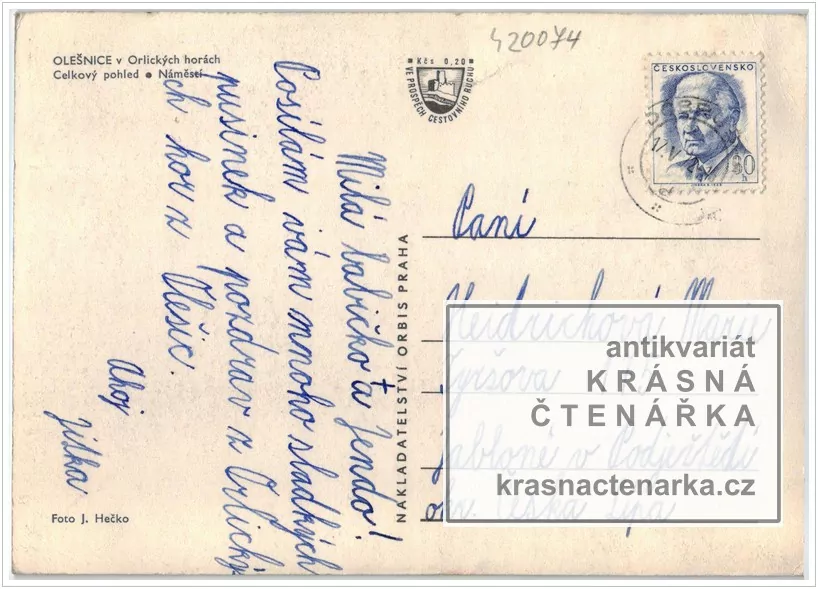 420074
OLEŠNICE v Orlických horách
Celkový pohled • Náměstí
Kčs 0,20
VE PROSPĚCH CESTOVNÍHO RUCHU
ČESKOSLOVENSKO
60
h
Milá babičko a Jendo!
Posílám vám mnoho sladkých
pusinek a pozdrav z Orlický
ch hor z Olešic.
Ahoj
Jitka
Foto J. Hečko
NAKLADATELSTVÍ ORBIS PRAHA
Paní
Heidrichová Marie
Tyršova
Jablonné v Podještědí
okr. Česká Lípa
antikvariát
KRÁSNÁ
ČTENÁŘKA
krasnactenarka.cz